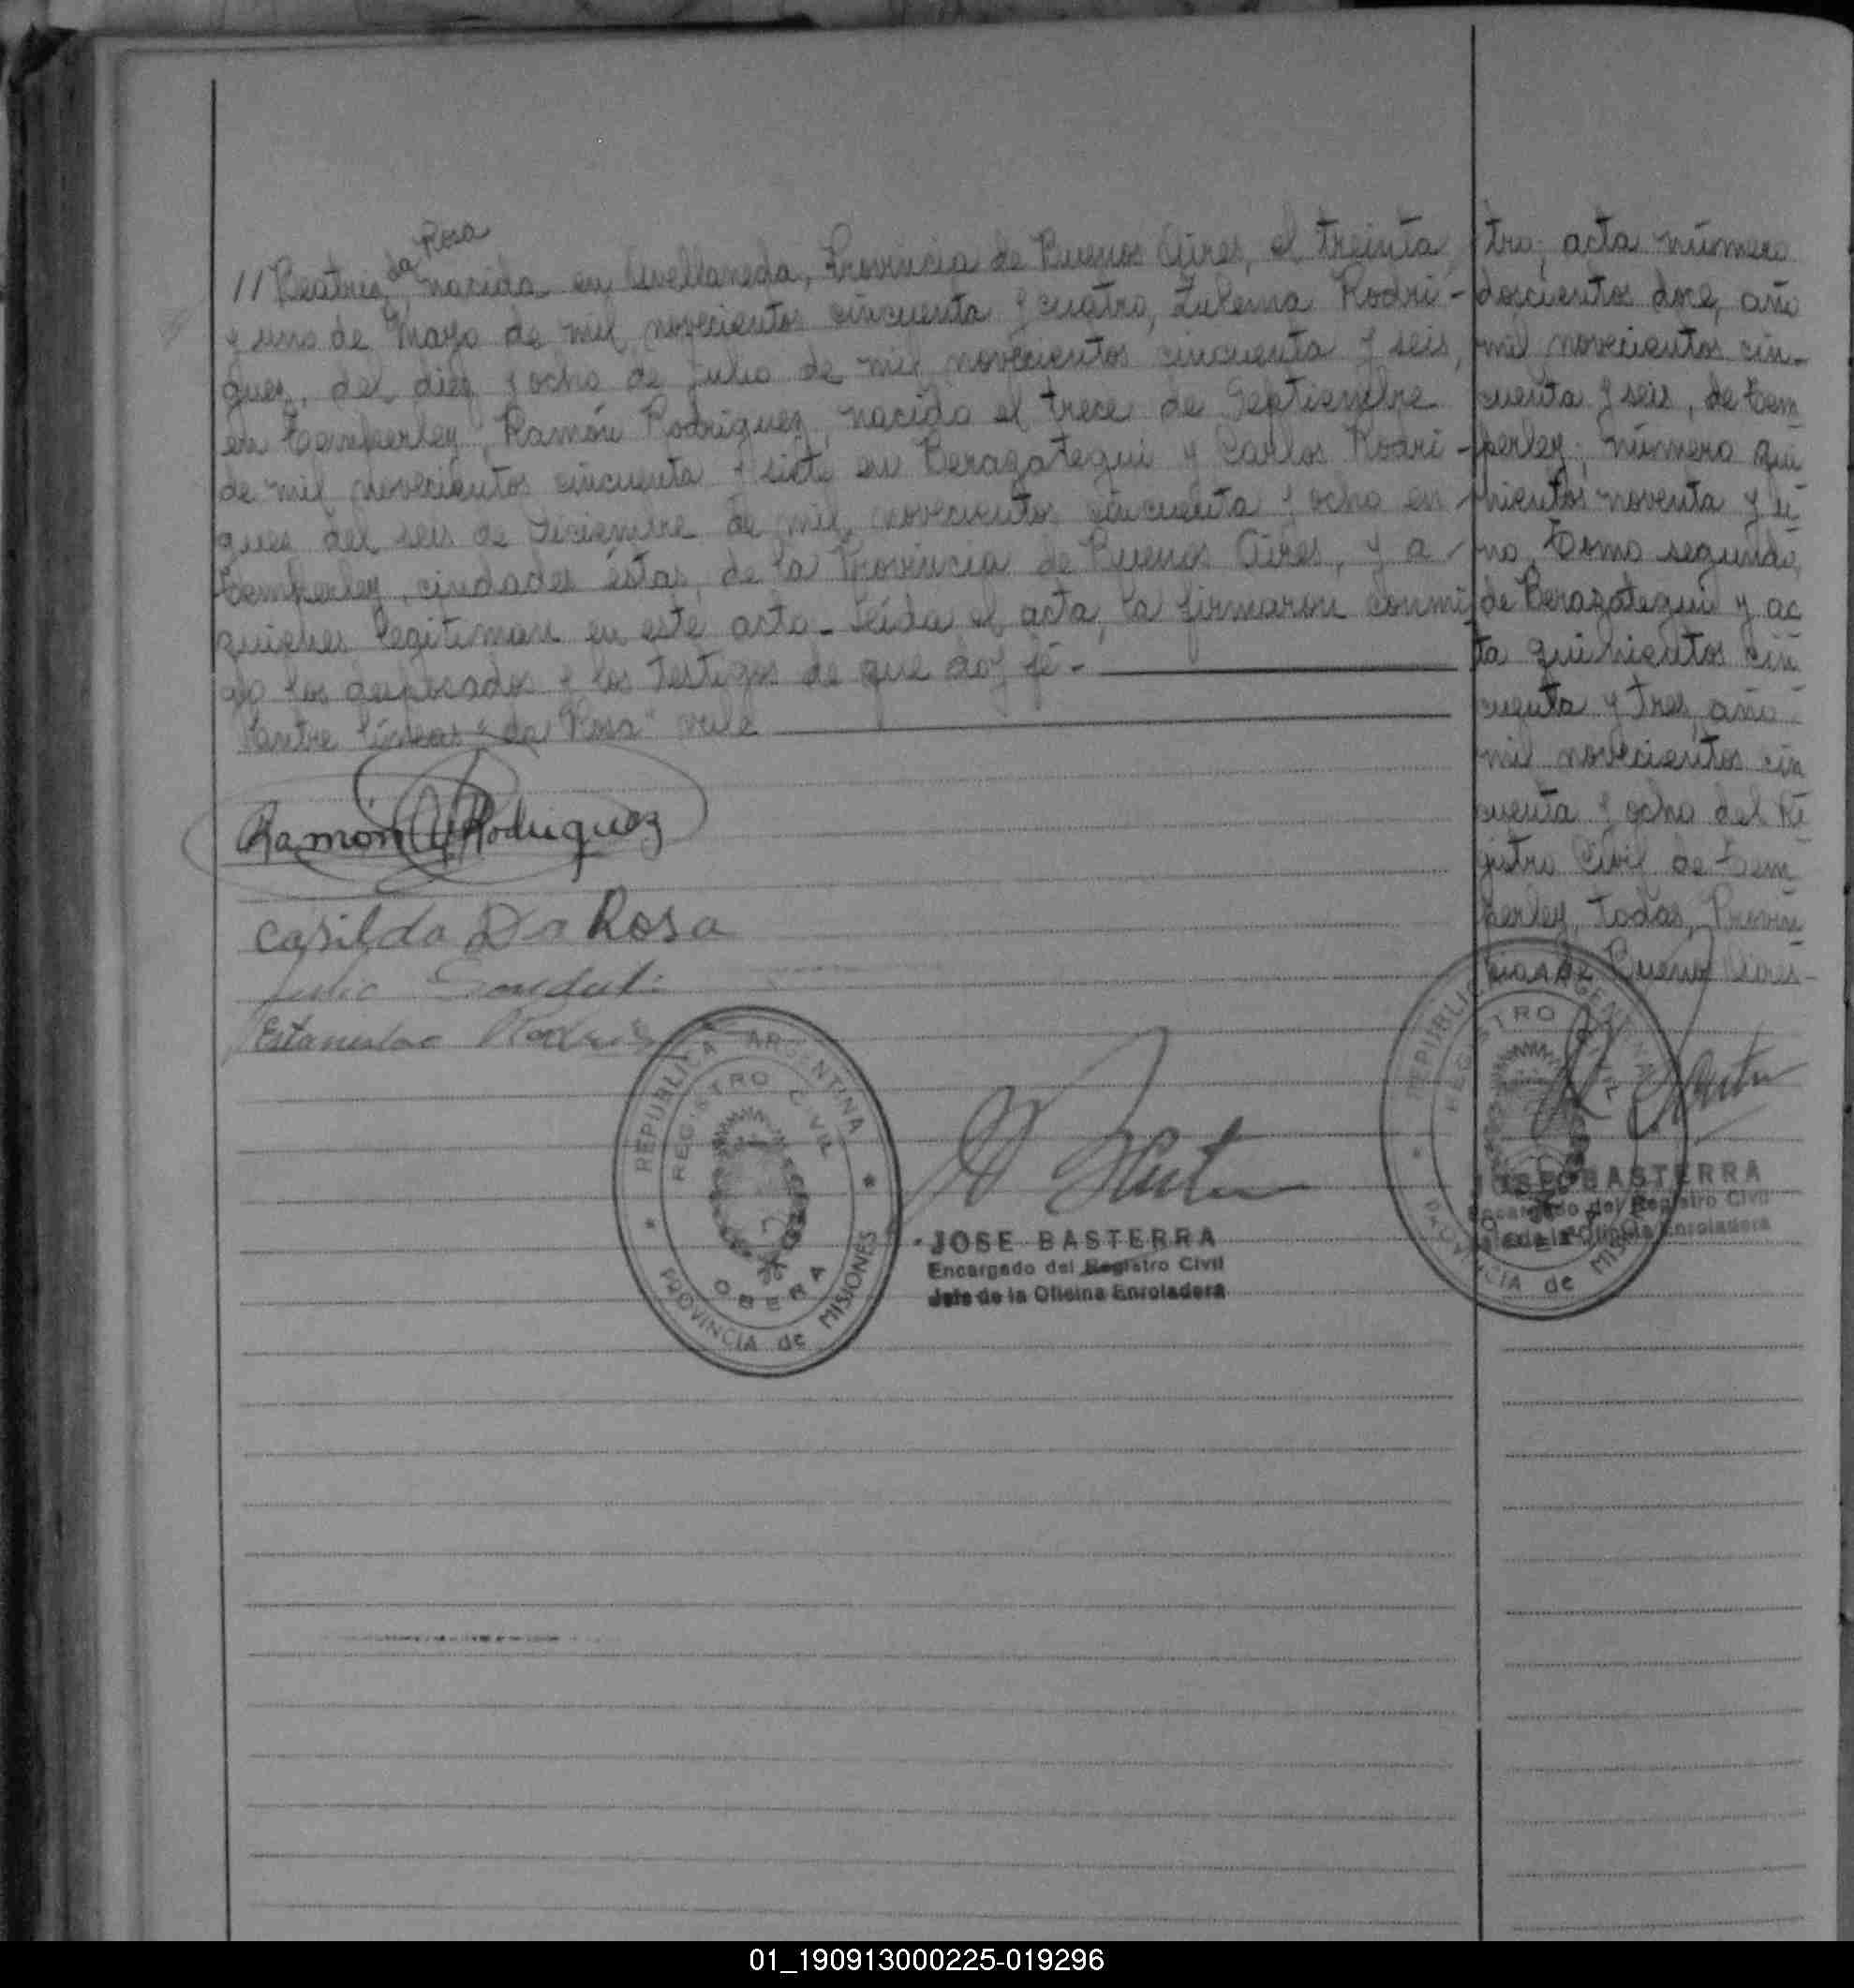 // Beatriz da Rosa, nacida en Avellaneda, Provincia de Buenos Aires, el treinta
y uno de Mayo de mil novecientos cincuenta y cuatro, Zulema Rodri-
guez, del diez y ocho de Julio de mil novecientos cincuenta y seis,
en Temperley, Ramón Rodriguez, nacido el trece de Septiembre
de mil novecientos cincuenta y siete en Berazategui y Carlos Rodri-
guez del seis de Diciembre de mil novecientos cincuenta y ocho en
Temperley, ciudades éstas, de la Provincia de Buenos Aires, y a
quienes legitiman en este acto - Leída el acta, la firmaron conmi-
go los desposados y los testigos de que doy fé. -
Entre líneas "da Rosa" vale
Ramón Rodriguez
Casilda Da Rosa
Julio
Estanislao
tro; acta número
doscientos doce, año
mil novecientos cin-
cuenta y seis, de Tem
perley; número qui
nientos noventa y u
no, Tomo segundo,
de Berazategui y ac
ta quinientos cin
cuenta y tres, año
mil novecientos cin
cuenta y ocho del Re
gistro Civil de Tem
perley, todas, Provin
cia de Buenos Aires -
REPUBLICA ARGENTINA
REGISTRO CIVIL
OBERA
PROVINCIA de MISIONES
JOSE BASTERRA
Encargado del Registro Civil
Jefe de la Oficina Enroladora
REPUBLICA ARGENTINA
REGISTRO CIVIL
OBERA
PROVINCIA de MISIONES
JOSE BASTERRA
Encargado del Registro Civil
Jefe de la Oficina Enroladora
01_190913000225-019296